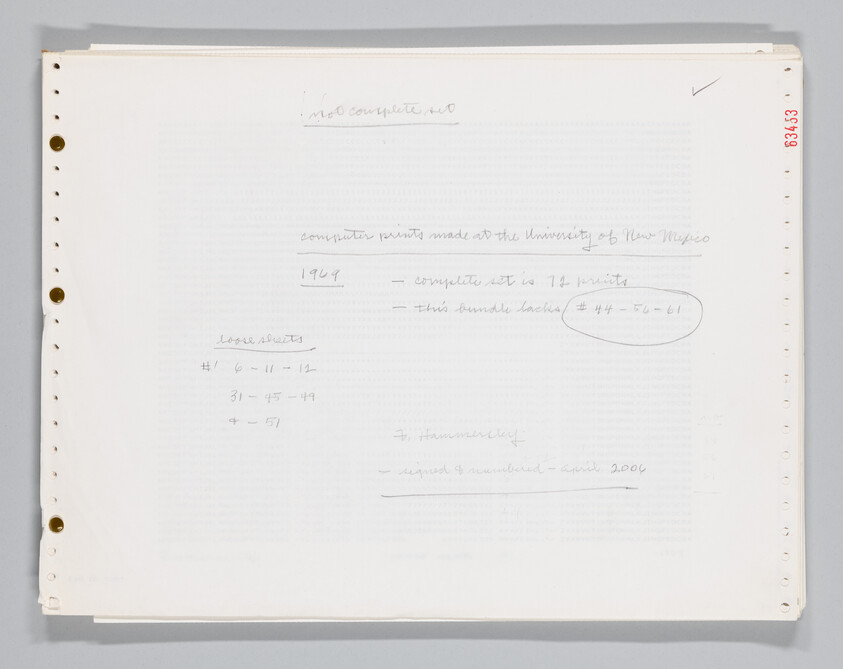 not complete set
63453
computer prints made at the University of New Mexico
1969
— complete set is 72 prints
— this bundle lacks # 44 - 56 - 61
loose sheets
#' 6 - 11 - 12
31 - 45 - 49
4 - 51
F. Hammersley
— signed & numbered - april 2006